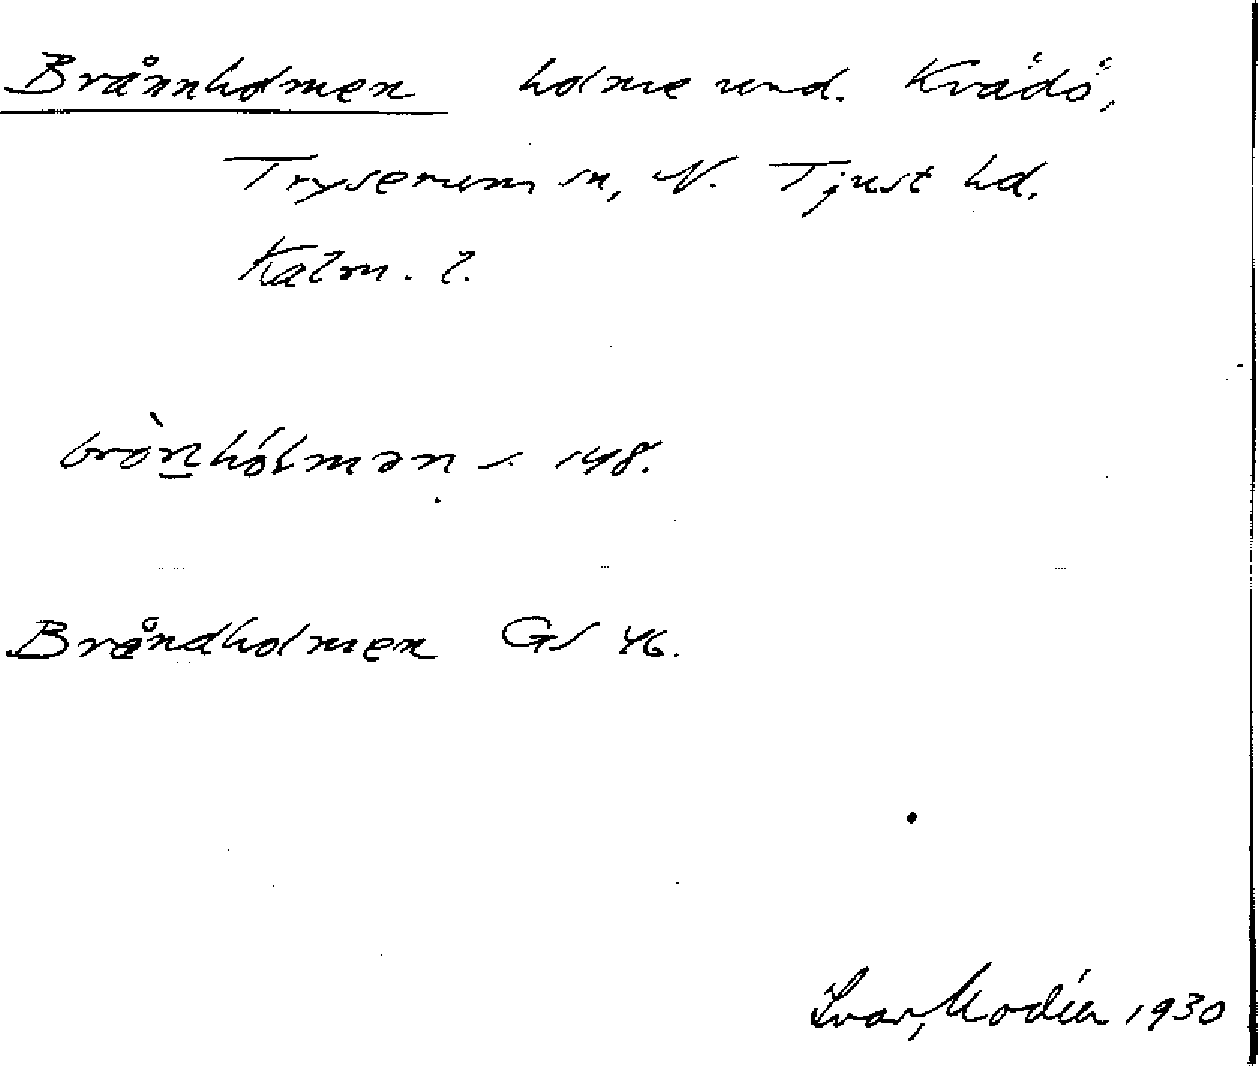 Brånnholmen holme und. Kvädö,
Tryserum sn, N. Tjust hd.
Kalm. l.
brònhólmən – 148.
Bråndholmen GS 46.
Ivar, Modéer 1930